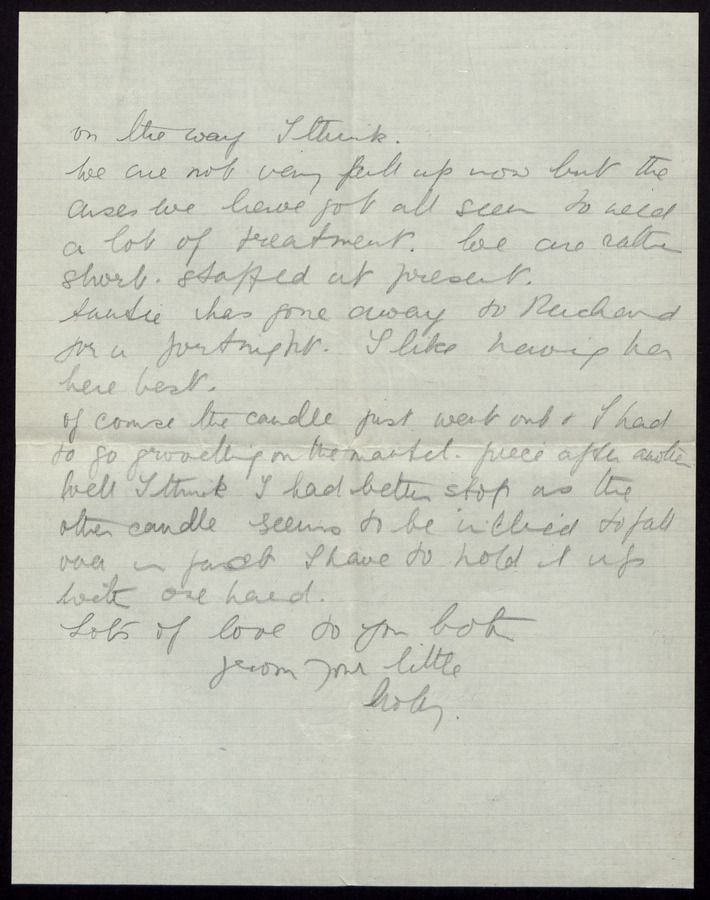 on the way I think.
We are not very full up now but the
cases we have got all seem to need
a lot of treatment. We are rather
short-staffed at present.
Auntie has gone away to
for a fortnight. I like having her
here best.
of course the candle just went out & I had
to go grovelling on the mantel-piece after another
Well I think I had better stop as the
other candle seems to be inclined to fall
over in fact I have to hold it up
with one hand.
Lots of love to you both
from your little